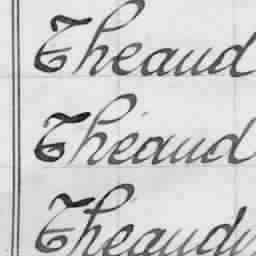 Theaud
Théaud
Theaudi